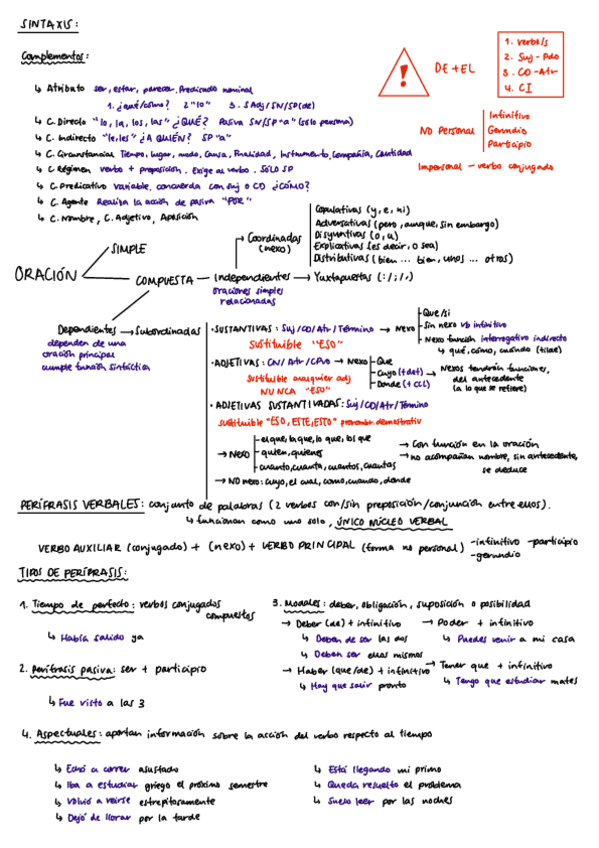 SINTAXIS:
Complementos:
↳ Atributo ser, estar, parecer. Predicado nominal
1. ¿qué/cómo? 2 "lo" 3. SAdj/SN/SP(de)
↳ C. Directo "lo, la, los, las" ¿QUÉ? Pasiva SN/SP "a" (solo persona)
↳ C. Indirecto "le, les" ¿A QUIÉN? SP "a"
↳ C. Circunstancial Tiempo, lugar, modo, causa, Finalidad, Instrumento, Compañía, Cantidad
↳ C. Régimen verbo + preposición. Exige al verbo. SOLO SP
↳ C. Predicativo variable. concuerda con suj o CD ¿CÓMO?
↳ C. Agente Realiza la acción de pasiva "POR"
↳ C. Nombre, C. Adjetivo, Aposición
!
DE + EL
1. verbo/s
2. Suj - Pdo
3. CD - Atr
4. CI
No Personal
Infinitivo
Gerundio
Participio
Impersonal - verbo conjugado
ORACIÓN
SIMPLE
COMPUESTA → Independientes
oraciones simples
relacionadas
→ Coordinadas
(nexo)
Copulativas (y, e, ni)
Adversativas (pero, aunque, sin embargo)
Disyuntivas (o, u)
Explicativas (es decir, o sea)
Distributivas (bien ... bien, unos ... otros)
→ Yuxtapuestas (: / ; / ,)
Dependientes → Subordinadas
dependen de una
oración principal
cumple función sintáctica
· SUSTANTIVAS: Suj/CD/Atr/Término → Nexo
sustituible "ESO"
Que/si
Sin nexo vb infinitivo
Nexo función interrogativo indirecto
↳ qué, cómo, cuándo (tilde)
· ADJETIVAS: CN/Atr/CPvo → Nexo
Sustituible cualquier adj
NUNCA "ESO"
Que
Cuyo (+det)
Donde (+CCL)
→ Nexos tendrán funciones,
del antecedente
(a lo que se refiere)
· ADJETIVAS SUSTANTIVADAS: Suj/CD/Atr/Término
sustituible "ESO, ESTE, ESTO" pronombr. demostrativ
→ Nexo
el que, la que, lo que, los que
quien, quienes
cuanto, cuanta, cuantos, cuantas
→ NO nexo: cuyo, el cual, como, cuando, donde
→ Con función en la oración
→ no acompañan nombre, sin antecedente,
se deduce
PERÍFRASIS VERBALES: conjunto de palabras (2 verbos con/sin preposición/conjunción entre ellos).
↳ funcionan como uno solo, ÚNICO NÚCLEO VERBAL
VERBO AUXILIAR (conjugado) + (nexo) + VERBO PRINCIPAL (forma no personal) -infinitivo -participio
-gerundio
TIPOS DE PERÍFRASIS:
1. Tiempo de perfecto: verbos conjugados
compuestos
↳ Había salido ya
2. Perífrasis pasiva: ser + participio
↳ Fue visto a las 3
3. Modales: deber, obligación, suposición o posibilidad
→ Deber (de) + infinitivo
↳ Deben de ser las dos
↳ Deben ser ellas mismas
→ Haber (que/de) + infinitivo
↳ Hay que salir pronto
→ Poder + infinitivo
↳ Puedes venir a mi casa
→ Tener que + infinitivo
↳ Tengo que estudiar mates
4. Aspectuales: aportan información sobre la acción del verbo respecto al tiempo
↳ Echó a correr asustado
↳ Iba a estudiar griego el próximo semestre
↳ Volvió a reirse estrepitosamente
↳ Dejó de llorar por la tarde
↳ Está llegando mi primo
↳ Queda resuelto el problema
↳ Suelo leer por las noches